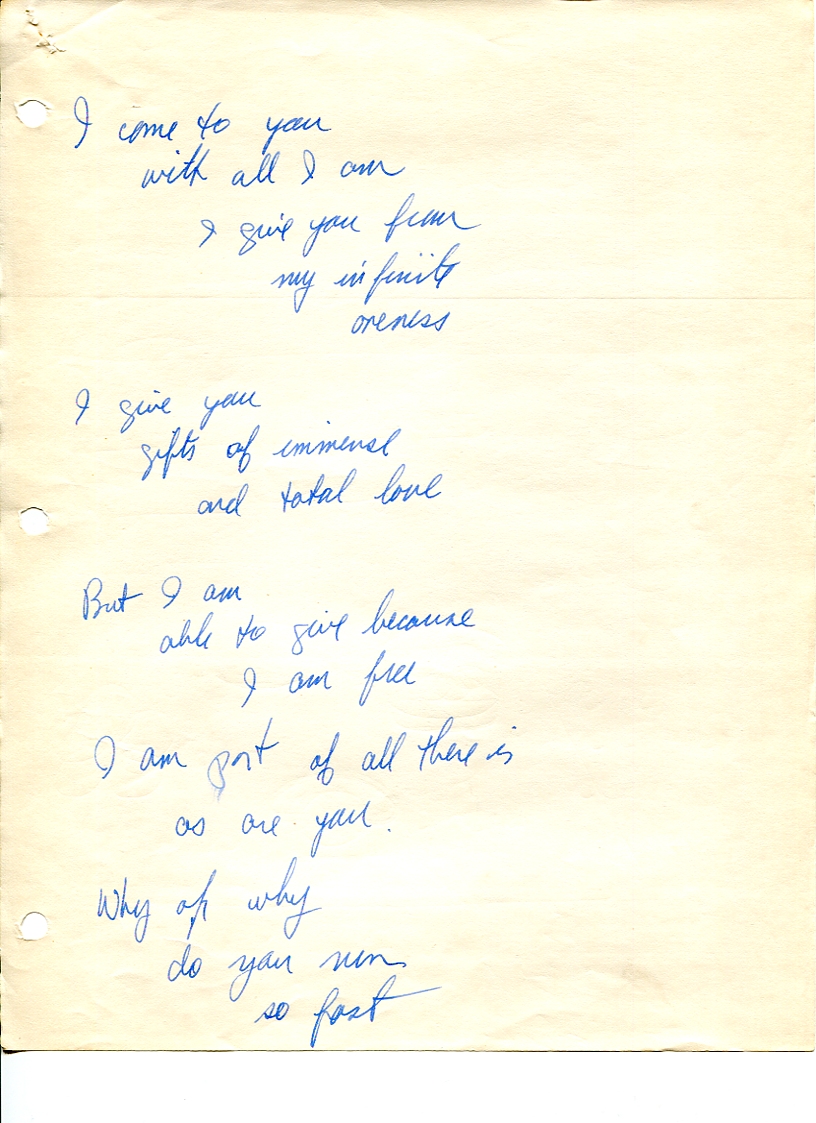 I come to you
with all I am
I give you from
my infinite
oneness
I give you
gifts of immense
and total love
But I am
able to give because
I am free
I am part of all there is
as are you.
Why oh why
do you run
so fast